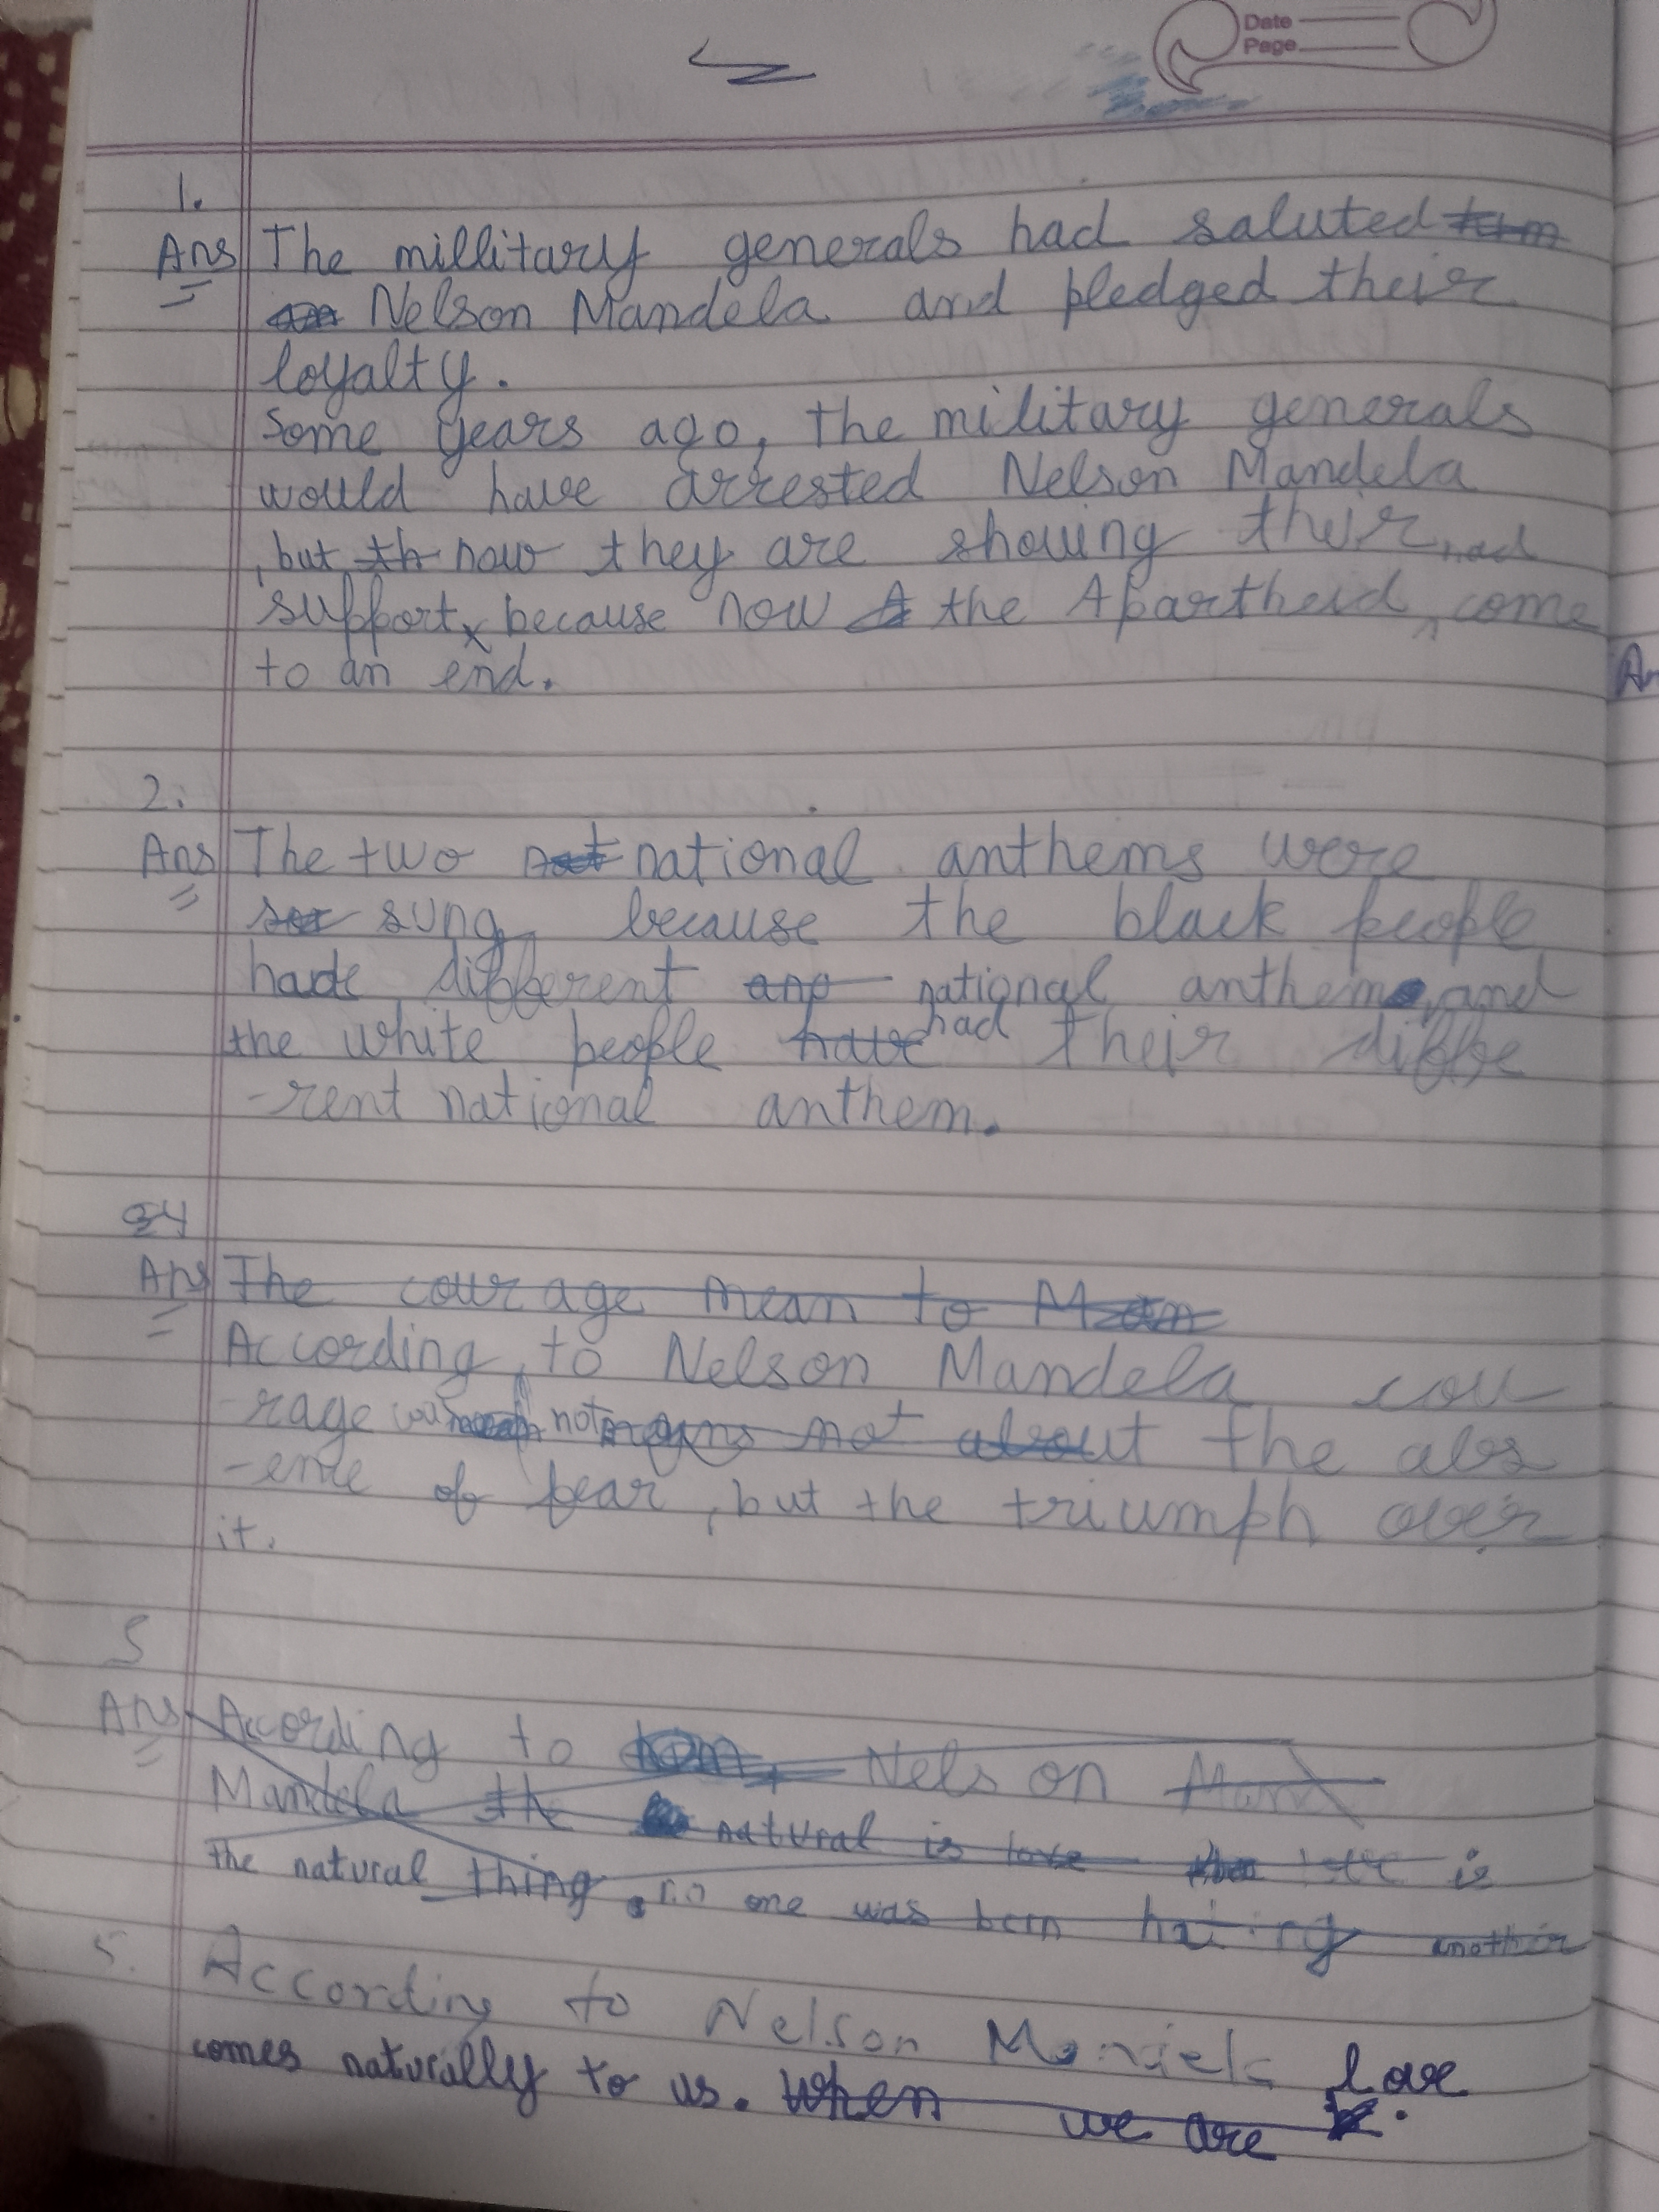 Date
Page
1.
Ans The millitary generals had saluted
Nelson Mandela and pledged their
loyalty.
Some years ago, the military generals
would have arrested Nelson Mandela
, but now they are showing their had
support because now the Apartheid come
to an end.
2.
Ans The two national anthems were
sung because the black people
had different national anthem and
the white people had their diffe
-rent national anthem.
4
Ans The courage mean to
According to Nelson Mandela cou
-rage was not the abs
-ence of fear, but the triumph over
it.
5
Ans According to Nelson
Mandela the natural is love love is
the natural thing. no one was born hating another
5. According to Nelson Mandela love
comes naturally to us. When we are